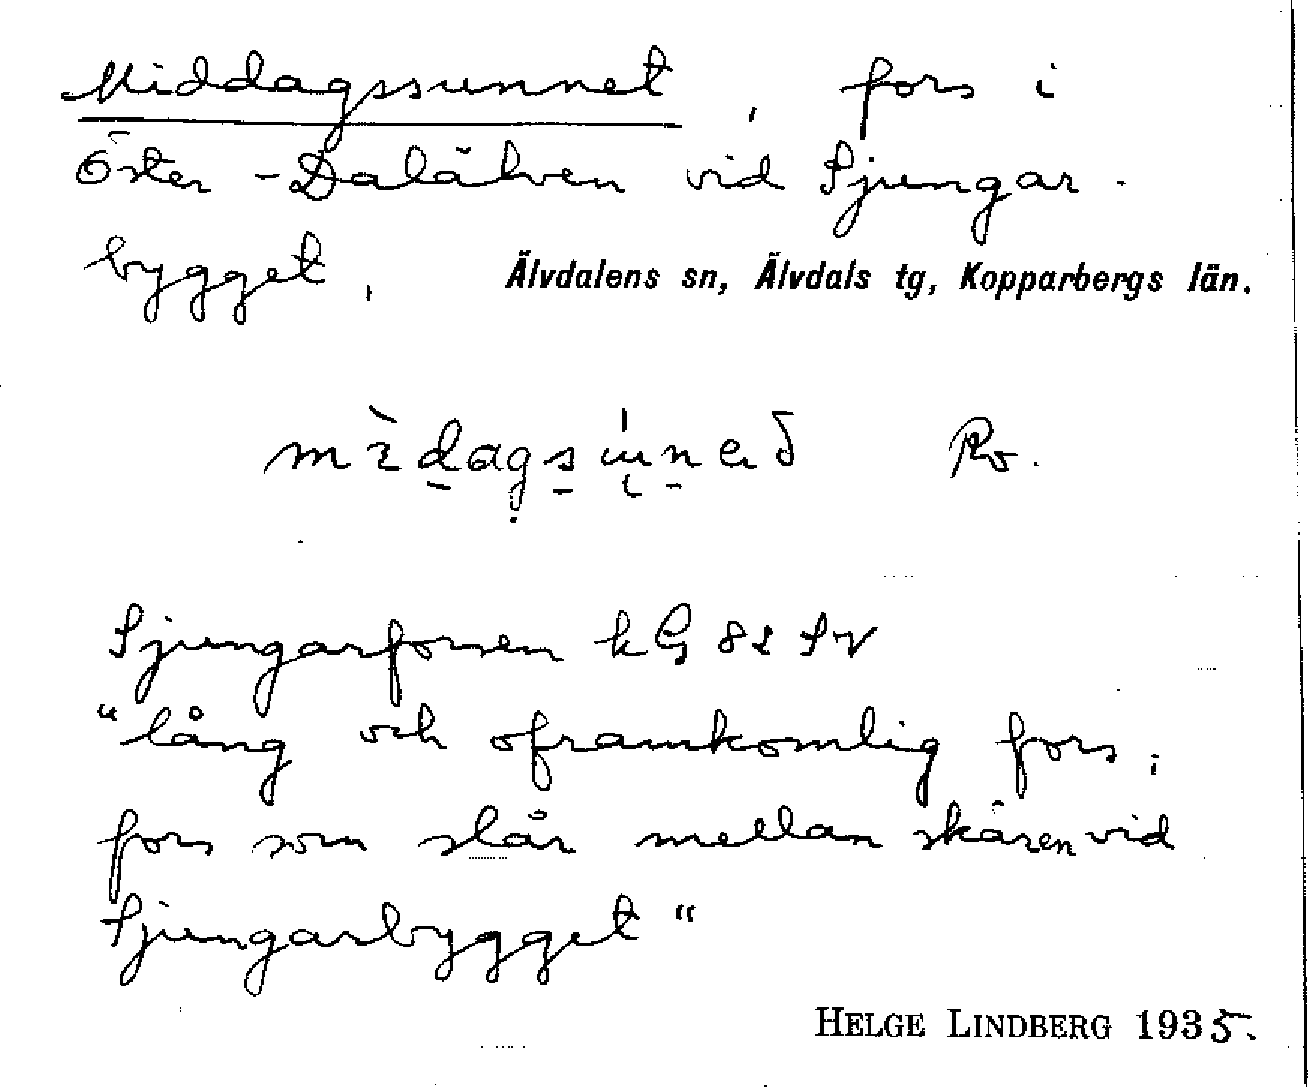 Middagssunnet, fors i
Öster-Dalälven vid Sjungar-
bygget,
Älvdalens sn, Älvdals tg, Kopparbergs län.
Sjungarforsen kG 82 SV
"lång och oframkomlig fors;
fors som slår mellan skären vid
Sjungarbygget"
HELGE LINDBERG 1935.